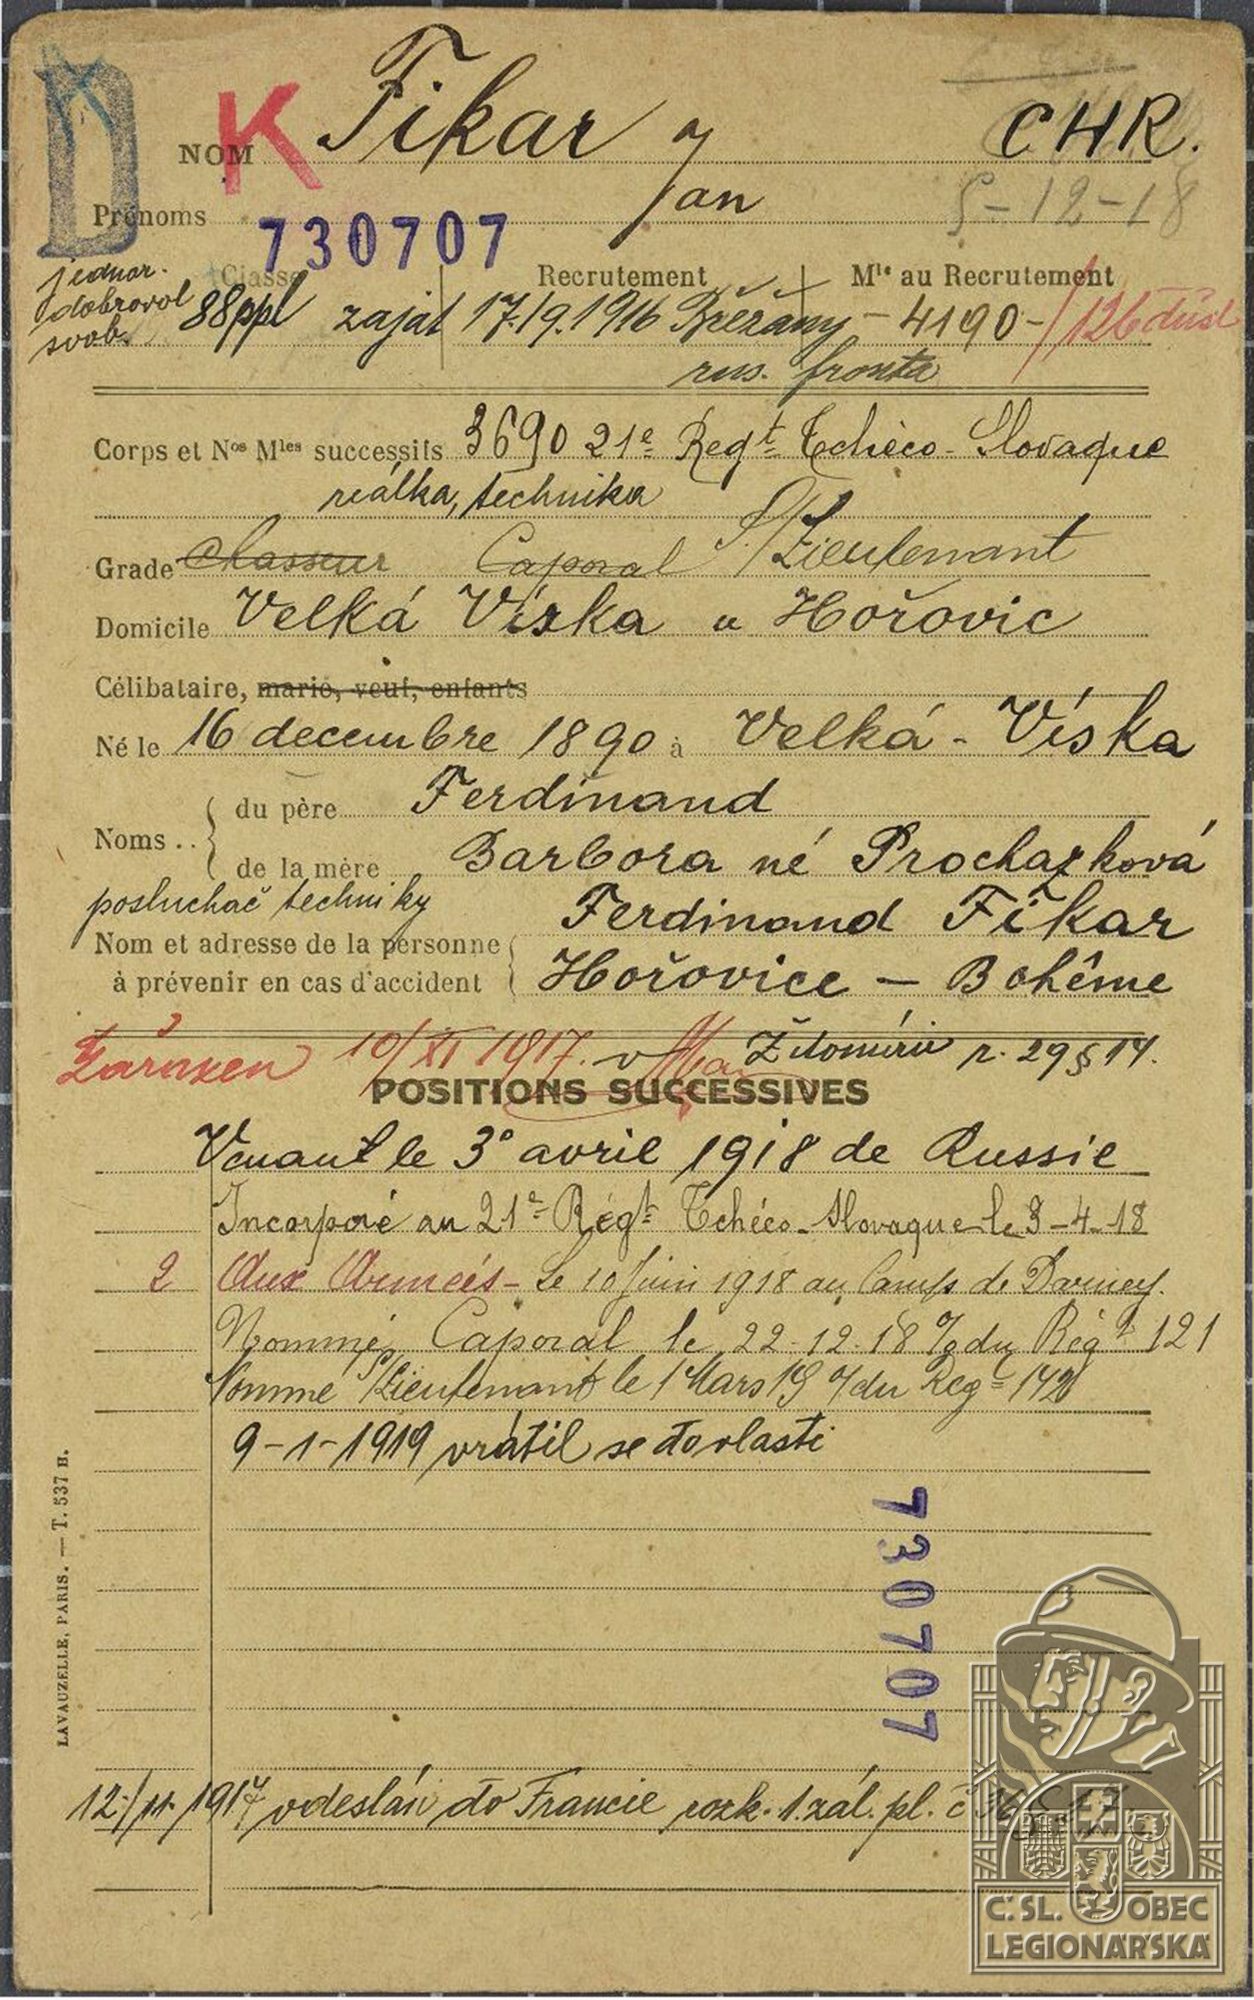 D
K
NOM Fikar CHR.
Prénoms Jan 5-12-18
730707
jednor.
dobrovol
svob.
Classe Recrutement Mle au Recrutement
88ppl zajat 17.9.1916 Břežany - 4190 -
rus. fronta
Corps et Nos Mles successifs 3690 21e Regt Tchèco-Slovaque
reálka, technika
Grade Chasseur Caporal S/Lieutenant
Domicile Velká Víska u Hořovic
Célibataire, marié, veuf, enfants
Né le 16 decembre 1890 à Velká-Víska
Noms .. du père Ferdinand
de la mère Barbora né Prochazková
posluchač techniky
Nom et adresse de la personne Ferdinand Fikar
à prévenir en cas d'accident Hořovice - Bohême
Zařazen 10/XI 1917. v Žitomíru r. 29 § 14.
POSITIONS SUCCESSIVES
Venant le 3º avril 1918 de Russie
Incorporé au 21e Régt Tchéco-Slovaque le 3-4-18
2 Aux Armées - Le 10 Juin 1918 au Camp de Darney.
Nommé Caporal le 22-12-18 % du Régt 121
Nommé S/Lieutenant le 1 Mars 19 % du Regt 142
9-1-1919 vrátil se do vlasti
730707
LAVAUZELLE, PARIS. — T. 537 B.
12./11. 1917 odeslán do Francie rozk. 1. zál. pl. č
Č. SL. OBEC
LEGIONÁŘSKÁ